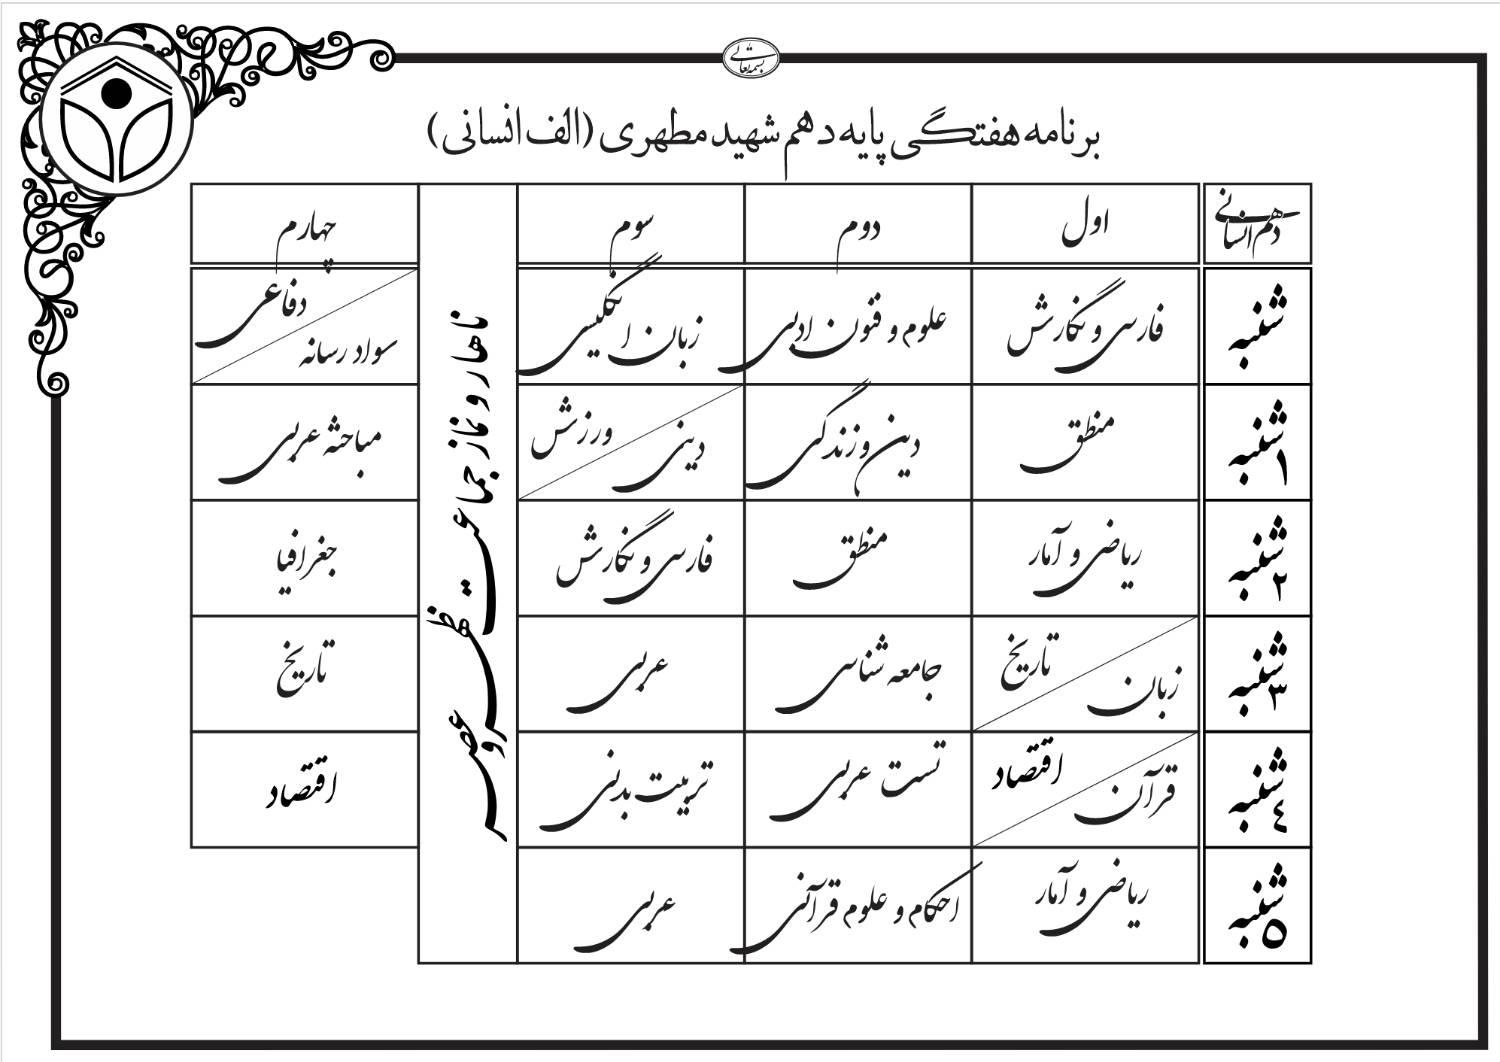 بسمه تعالی
برنامه هفتگی پایه دهم شهید مطهری (الف انسانی)
دهم انسانی اول دوم سوم چهارم
شنبه فارسی و نگارش علوم و فنون ادبی زبان انگلیسی دفاعی / سواد رسانه
۱ شنبه منطق دین و زندگی دینی / ورزش مباحثه عربی
۲ شنبه ریاضی و آمار منطق فارسی و نگارش جغرافیا
۳ شنبه زبان / تاریخ جامعه شناسی عربی تاریخ
۴ شنبه قرآن / اقتصاد تست عربی تربیت بدنی اقتصاد
۵ شنبه ریاضی و آمار احکام و علوم قرآنی عربی
ناهار و نماز جماعت ظهر و عصر